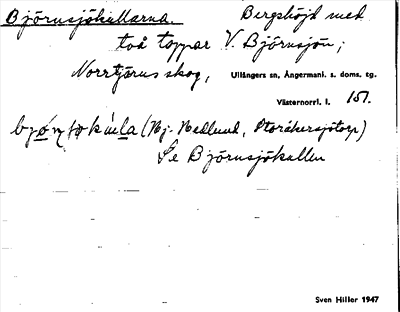 Björnsjökullarna. Bergshöjd med
två toppar V. Björnsjön,
Norrtjärns skog, Ullångers sn, Ångermanl. s. doms. tg.
Västernorrl. l. 151.
(Hj. Hedlund, Storåkersjötorp)
Se Björnsjökullen
Sven Hiller 1947